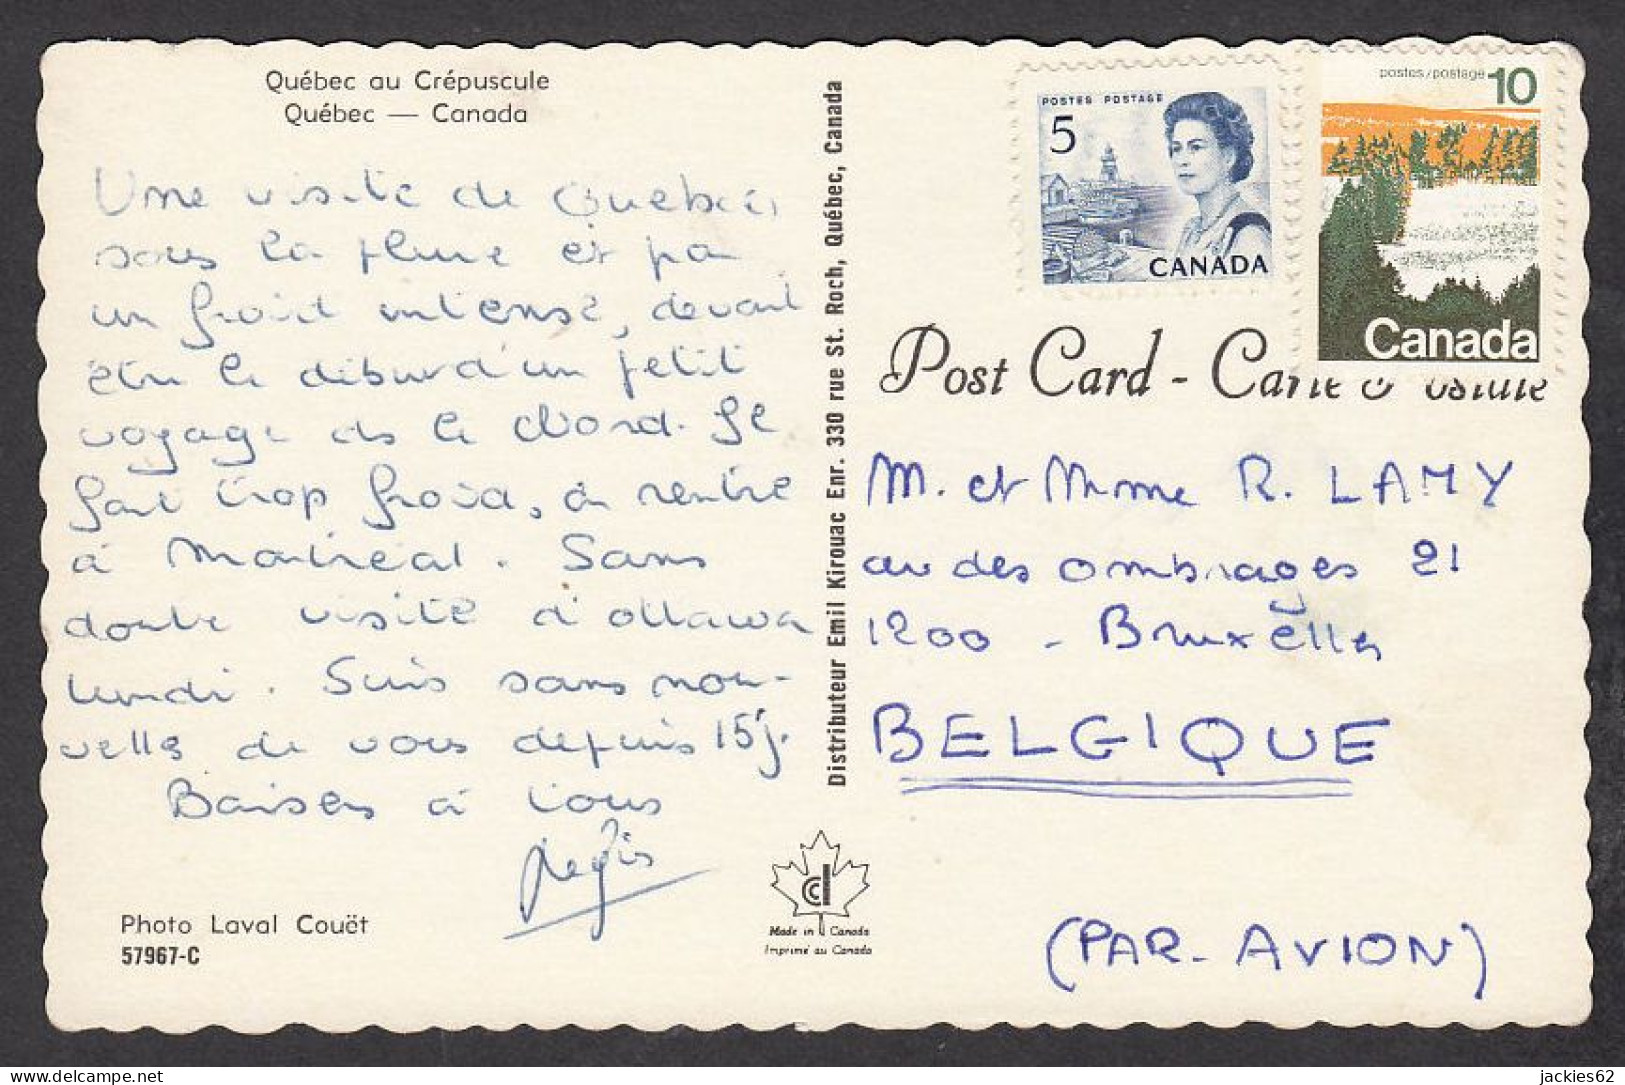 Québec au Crépuscule
Québec — Canada
Une visite de Québec,
sous la pluie et par
un froid intense, devait
être le début d'un petit
voyage ds le Nord. Il
fait trop froid, on rentre
à Montréal. Sans
doute visite d'Ottawa
lundi. Suis sans nou-
velles de vous depuis 15 j.
Baisers à tous
Régis
Photo Laval Couët
57967-C
Distributeur Emil Kirouac Enr. 330 rue St. Roch, Québec, Canada
Made in Canada
Imprimé au Canada
POSTES POSTAGE
5
CANADA
postes/postage 10
Canada
Post Card - Carte Postale
M. et Mme R. LAMY
av des ombrages 21
1200 - Bruxelles
BELGIQUE
(PAR-AVION)
jackies62